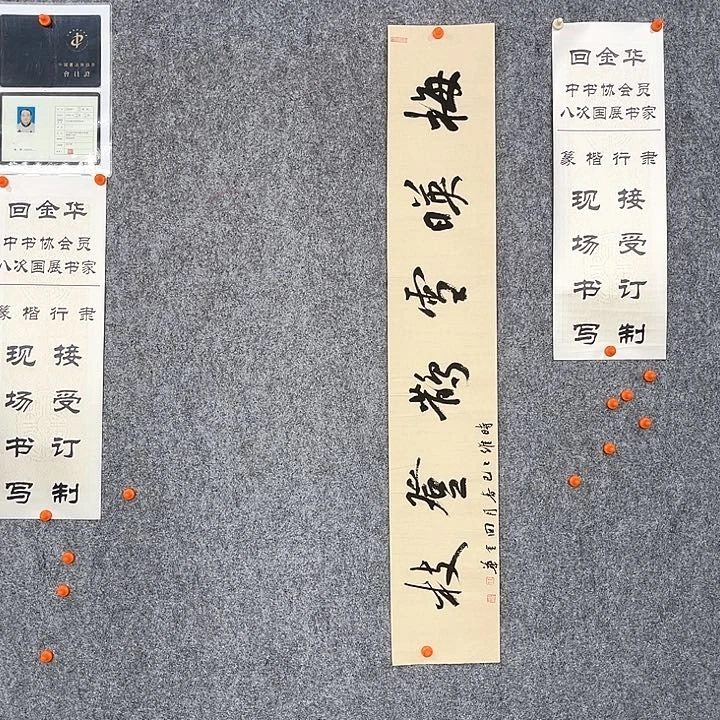 中国书法家协会
会员证
回金华
中书协会员
八次国展书家
篆楷行隶
现场书写
接受订制
梅映雪鹤登枝
时维乙巳春月回金华
回金华
中书协会员
八次国展书家
篆楷行隶
现场书写
接受订制